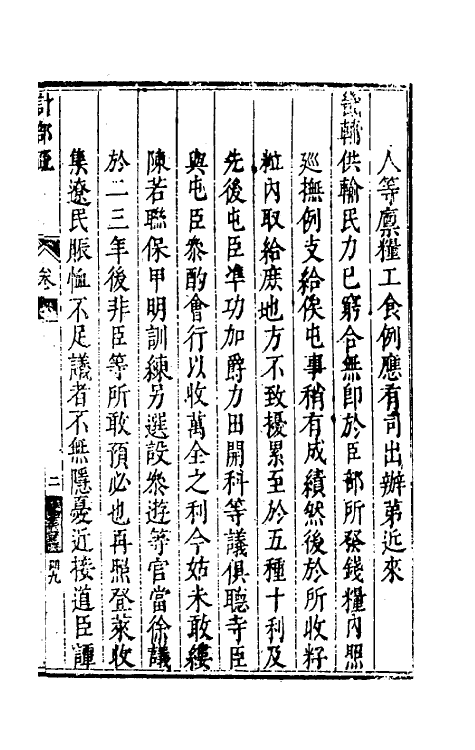 人等廪糧工食例應有司出辦第近來
畿輔供輸民力已窮合無即於臣部所發錢糧內照
廵撫例支給俟屯事稍有成績然後於所收籽
粒內取給庶地方不致擾累至於五種十利及
先後屯臣準功加爵力田開科等議俱聽寺臣
與屯臣叅酌會行以收萬全之利今姑未敢縷
陳若聯保甲明訓練另選設叅遊等官當徐議
於二三年後非臣等所敢預必也再照登萊收
集遼民賑恤不足議者不無隱憂近接道臣譚
計部 卷 二